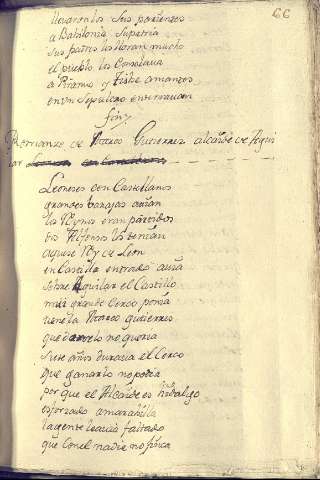 66
llevaronlos sus parientes
a Babilonia su patria
sus padres los lloran mucho
el pueblo los consolava
a Piramo y Tisbe amantes
en un sepulcro enterravan
fin
Romanze de Marcos Gutierrez alcaide de Agui
lar
Leoneses con Castellanos
grandes barajas avian
los Reynos eran partidos
dos Alfonsos los tenian
aquese Rey de Leon
en Castilla entrado avia
sobre Aguilar el Castillo
mui grande cerco ponia
tienela Marcos gutierres
que darselo no queria
siete años duraria el cerco
que ganarlo no podia
por que el Alcaide es hidalgo
esforzado a maravilla
la gente le avia faltado
que con el nadie no